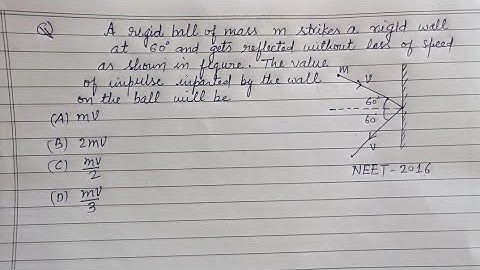 Q) A rigid ball of mass m strikes a rigid wall
at 60° and gets reflected without loss of speed
as shown in figure. The value
of impulse imparted by the wall
on the ball will be
(A) mV
(B) 2mV
(C) mV/2
(D) mV/3
m
V
60°
60°
V
NEET-2016